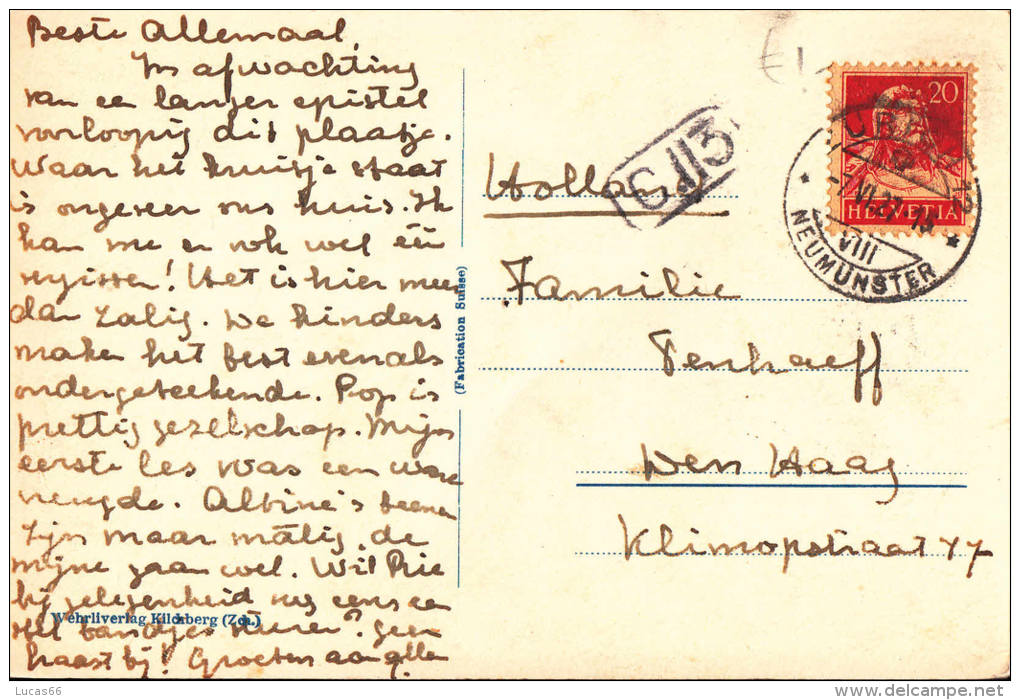 Beste Allemaal,
In afwachting
van een langer epistel
voorloopig dit plaatje.
Waar het kruisje staat
is ongeveer ons huis. Ik
kan me er ook wel één
vergissen! Het is hier meer
dan zalig. De kinders
maken het best evenals
ondergeteekende. Pop is
prettig gezelschap. Mijn
eerste les was een ware
vreugde. Albine's beenen
zijn maar matig, de
mijne gaan wel. Wil Rie
bij gelegenheid nog eens een
stel bandjes sturen? Geen
haast bij! Groeten aan allen
Wehrliverlag Kilchberg (Zch.)
(Fabrication Suisse)
€1
20
HELVETIA
VI.27
VIII
NEUMÜNSTER
Holland
Familie
Tenhaeff
Den Haag
Klimopstraat 77
Lucas66
www.delcampe.net